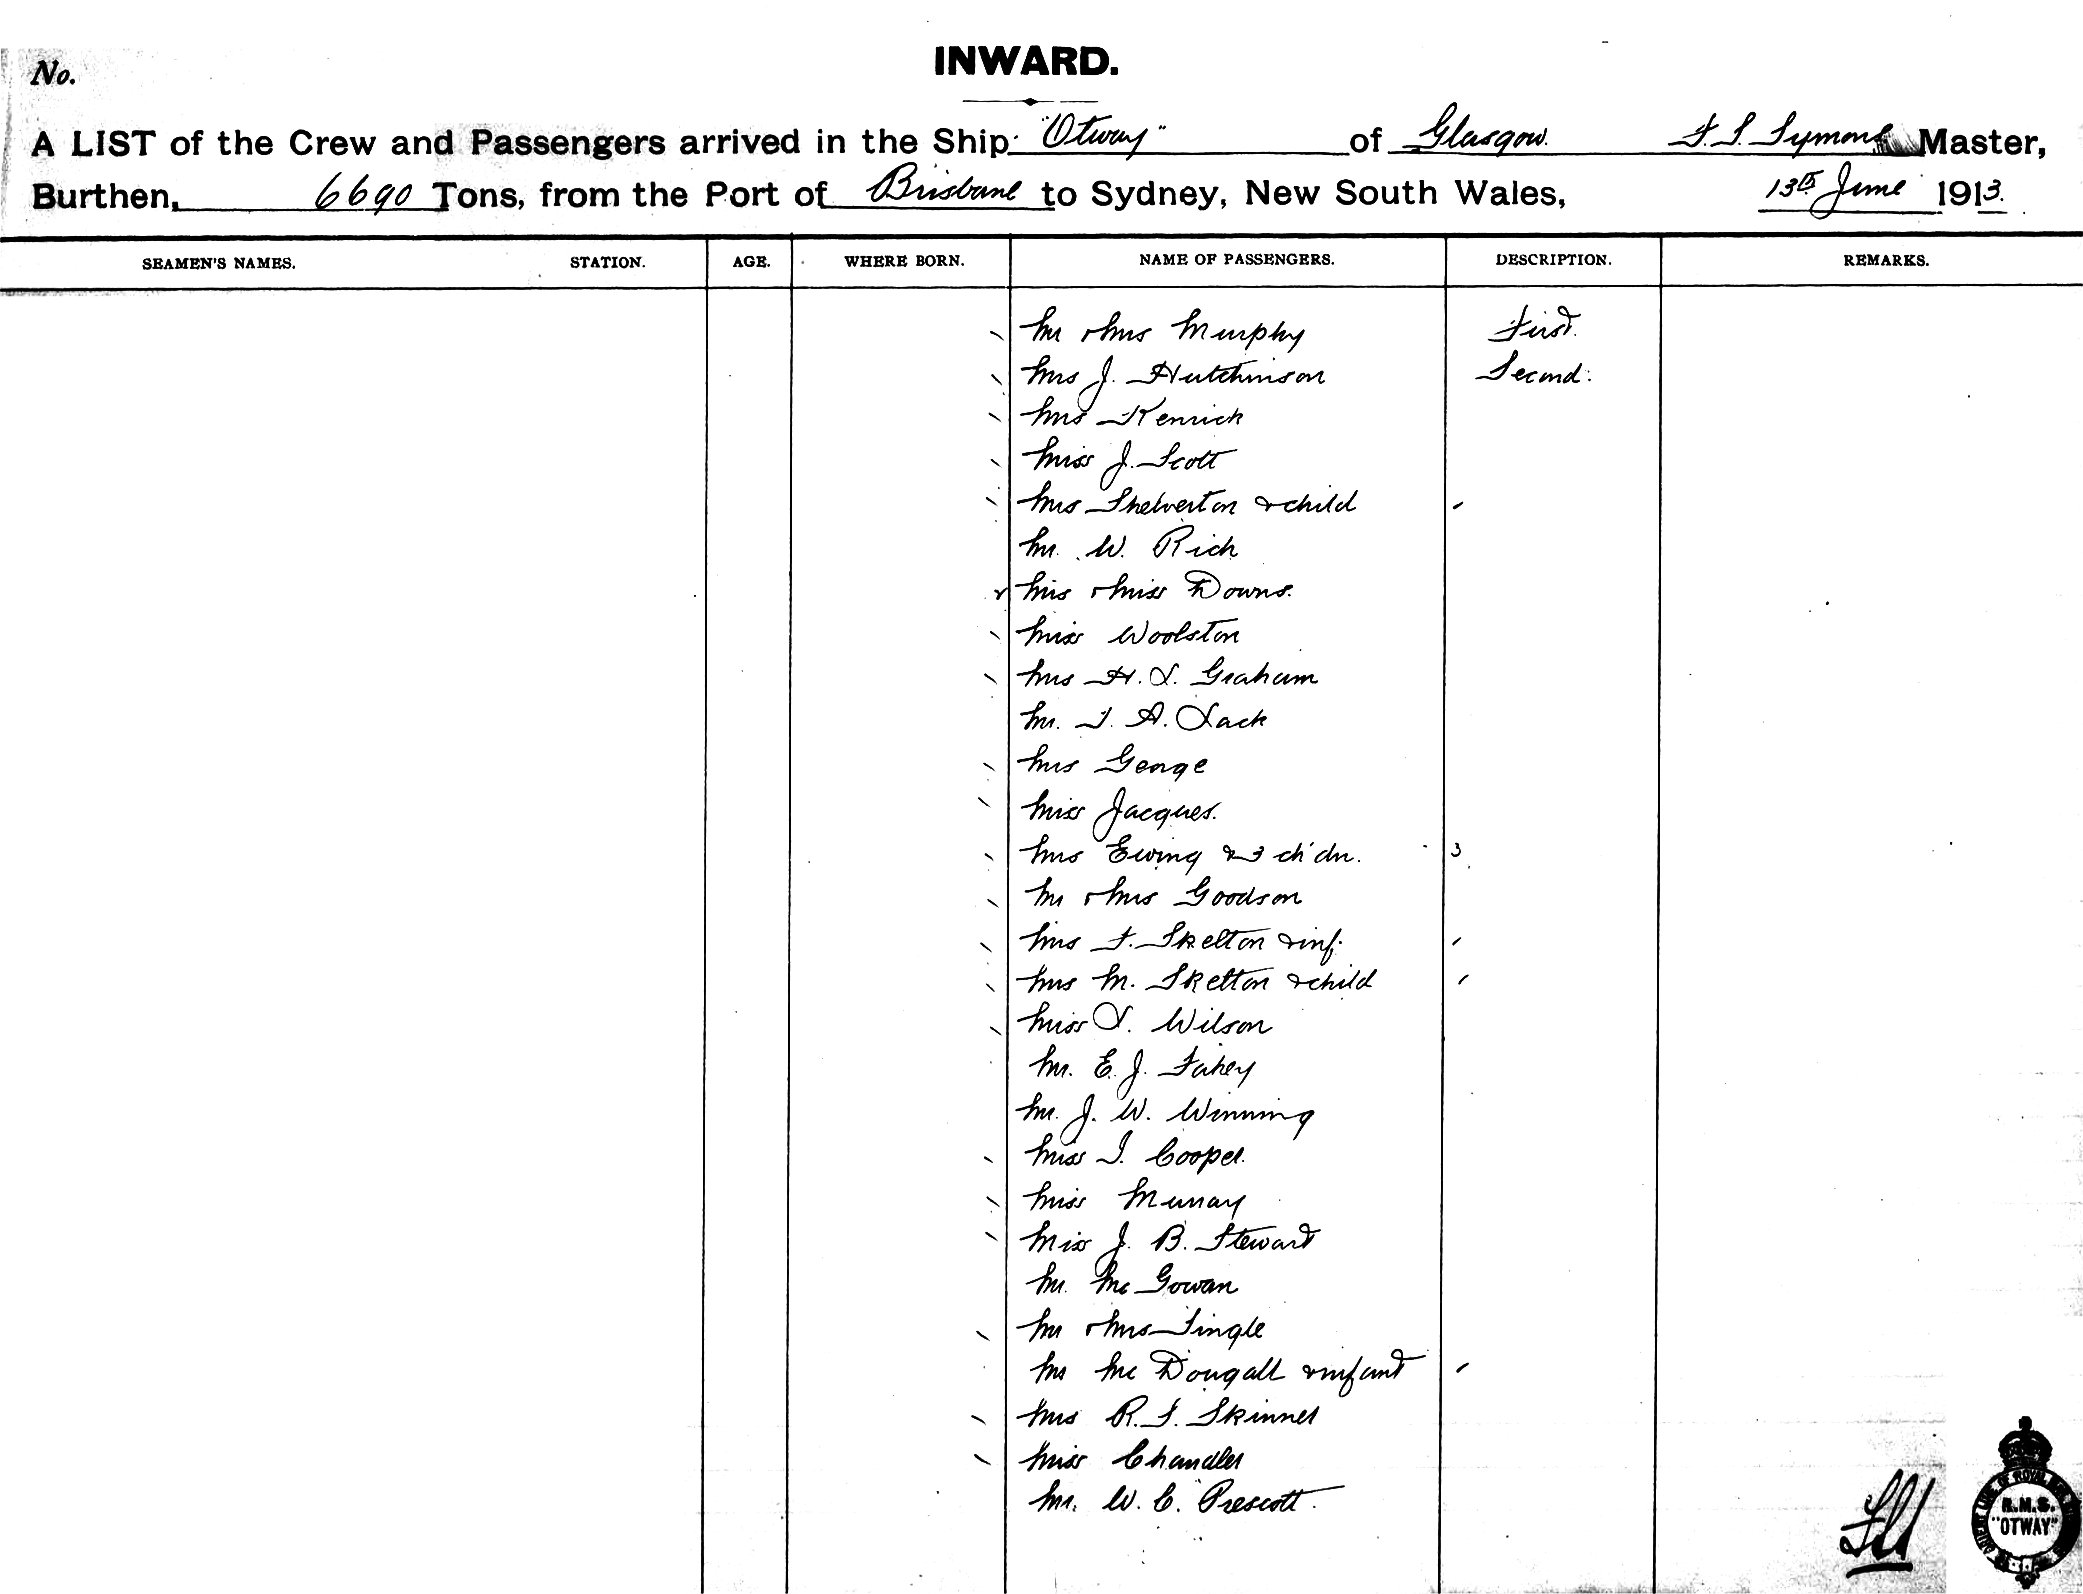 No.
INWARD.
A LIST of the Crew and Passengers arrived in the Ship "Otway" of Glasgow. Master,
Burthen, 6690 Tons, from the Port of Brisbane to Sydney, New South Wales, 13th June 1913.
SEAMEN'S NAMES. STATION. AGE. WHERE BORN. NAME OF PASSENGERS. DESCRIPTION. REMARKS.
Mr & Mrs Murphy First.
Mrs J. Hutchinson Second.
Mrs Kenrick
Miss J. Scott
Mrs Shelverton & child
Mr. W. Rich
Mrs & Miss Downs.
Miss Woolston
Mrs H. L. Graham
Mr. T. A. Lack
Mrs George
Miss Jacques.
Mrs Ewing & 3 ch'dn. 3
Mr & Mrs Goodson
Mrs F. Skelton & inf.
Mrs M. Skelton & child
Miss L. Wilson
Mr. E. J. Fahey
Mr. J. W. Winning
Miss I. Cooper.
Miss Murray
Miss J. B. Stewart
Mr. McGowan
Mr & Mrs Tingle
Mrs McDougall & infant
Mrs R. T. Skinner
Miss Chandler
Mr. W. C. Prescott.
R.M.S.
"OTWAY"